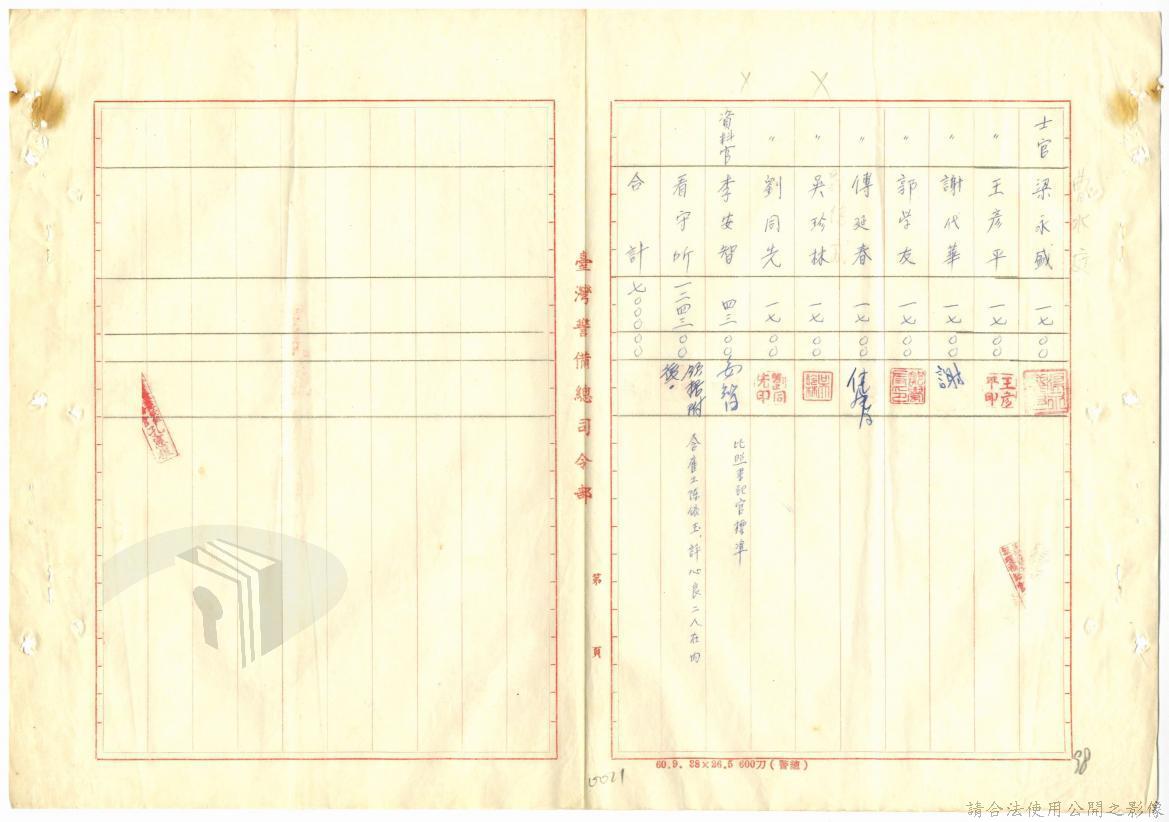 士官 梁永盛 一七〇〇
〃 王彥平 一七〇〇 王彥平印
〃 謝代華 一七〇〇 謝
〃 郭学友 一七〇〇
〃 傅延春 一七〇〇
〃 吳珍林 一七〇〇
〃 劉同先 一七〇〇 劉同先印
資料官 李安智 四三〇〇 比照書記官標準
看守所 一二四三〇〇 領據附後 含雇士陈依玉、許心良二人在内
合計 七〇〇〇〇〇
臺灣警備總司令部
第 頁
60.9. 38×26.5 600刀(警總)
0021
98
請合法使用公開之影像